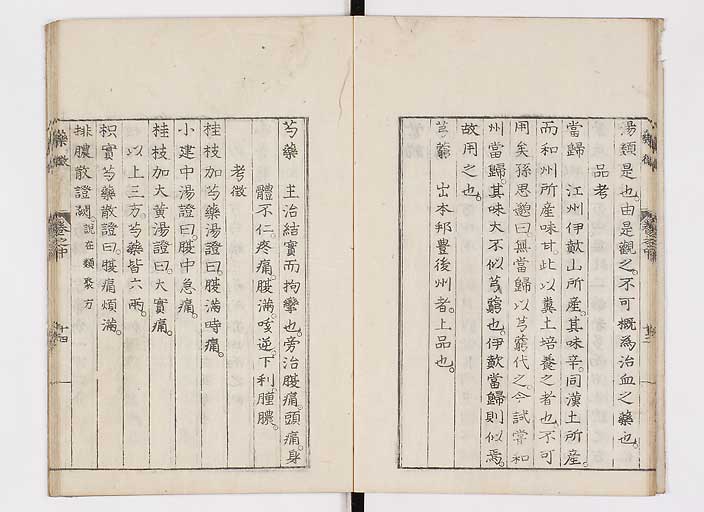 湯類是也。由是觀之。不可概為治血之藥也。
品考
當歸 江州伊歕山所產。其味辛。同漢土所產。
而和州所產味甘。此以糞土培養之者也。不可
用矣。孫思邈曰無當歸以芎藭代之。今試嘗和
州當歸。其味大不似芎藭也。伊歕當歸則似焉。
故用之也。
芎藭 出本邦豐後州者。上品也。
芍藥 主治結實而拘攣也。旁治腹痛。頭痛。身
體不仁。疼痛。腹滿。咳逆。下利。腫膿。
考徵
桂枝加芍藥湯證曰。腹滿時痛。
小建中湯證曰。腹中急痛。
桂枝加大黃湯證曰。大實痛。
以上三方。芍藥皆六兩。
枳實芍藥散證曰。腹痛煩滿。
排膿散證闕。說在類聚方
藥徵 卷之中 十四